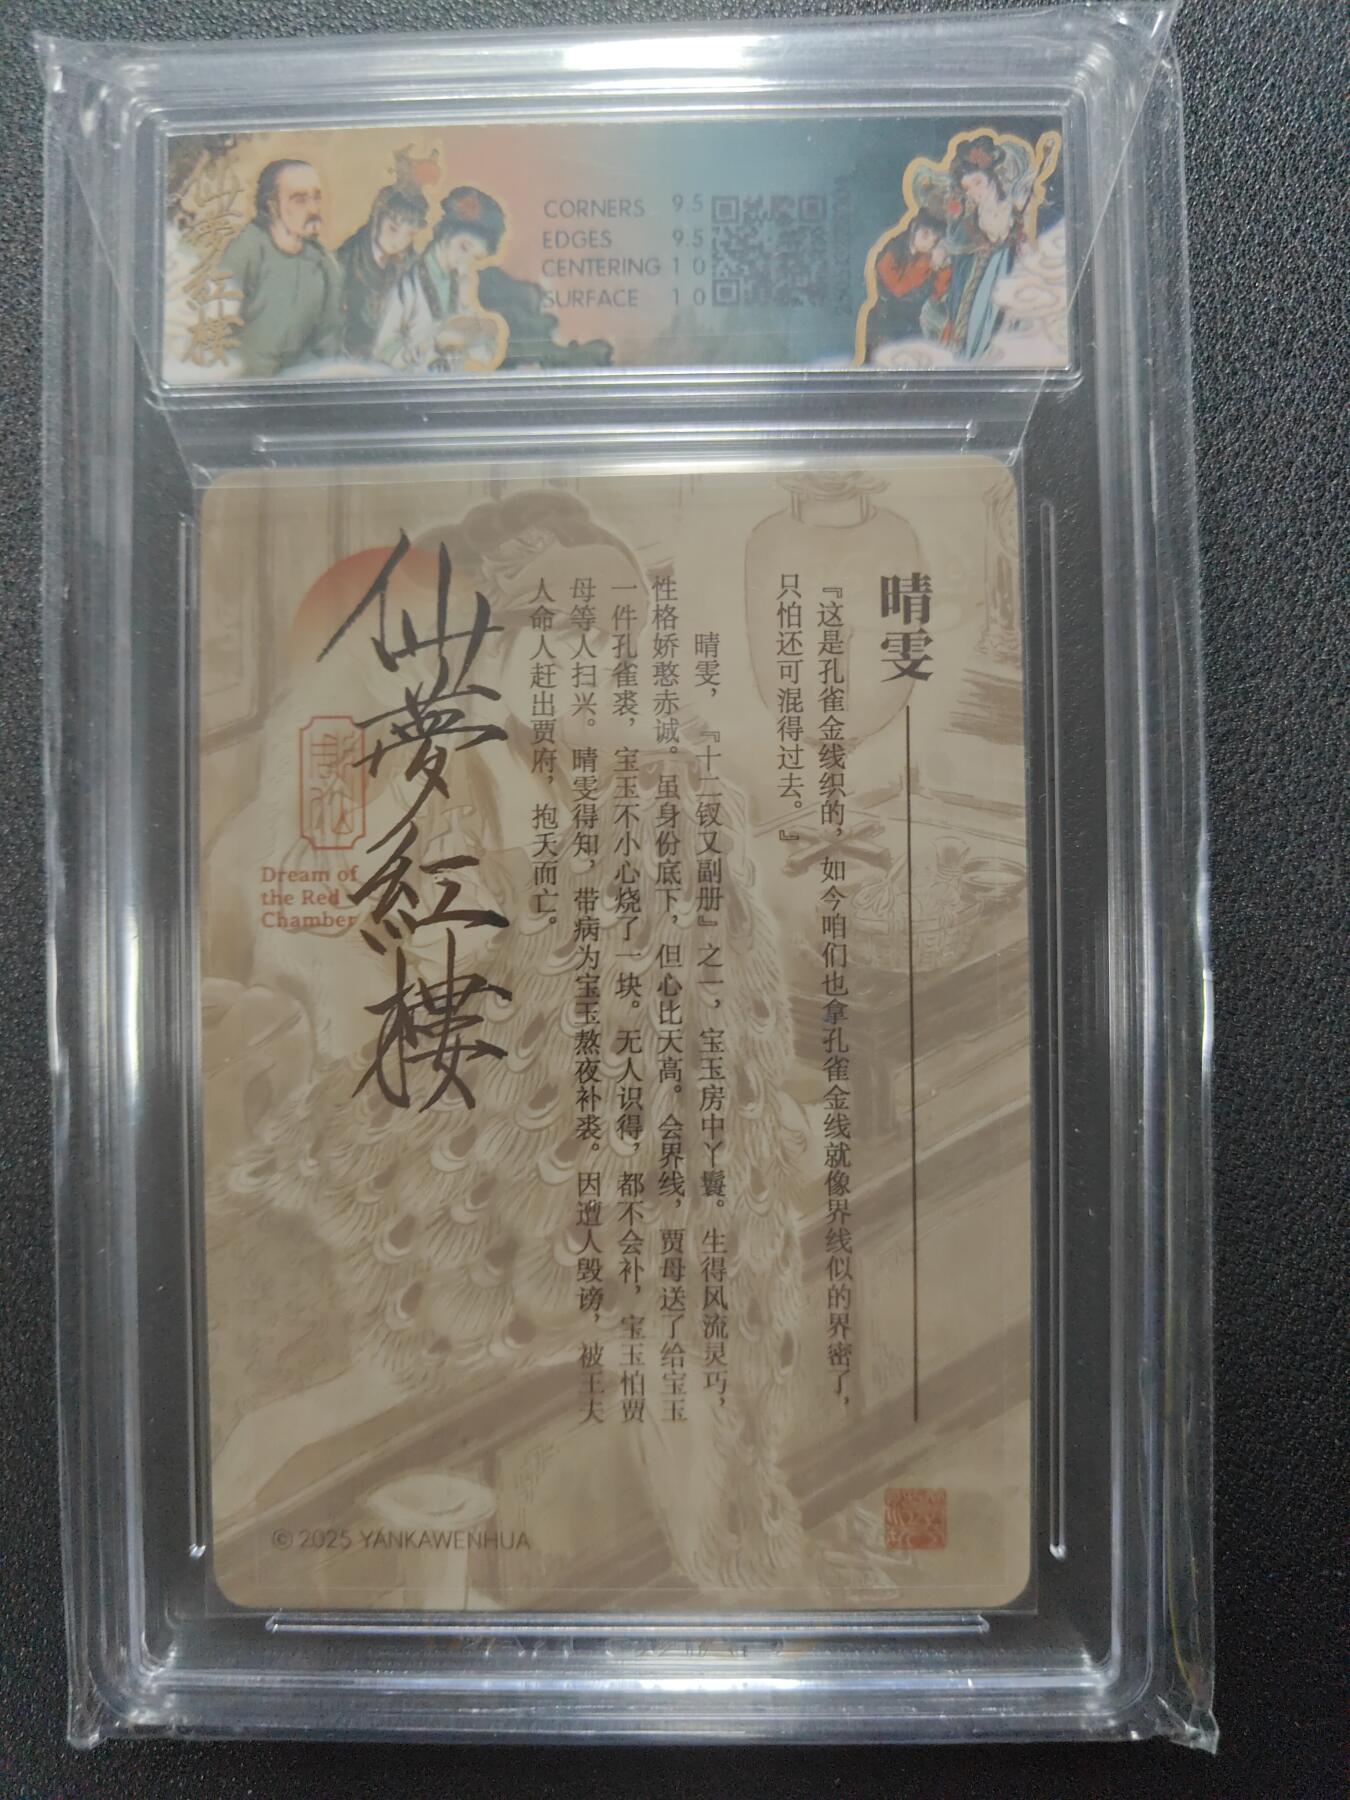 仙夢紅樓
CORNERS 9.5
EDGES 9.5
CENTERING 10
SURFACE 10
晴雯
『这是孔雀金线织的，如今咱们也拿孔雀金线就像界线似的界密了，
只怕还可混得过去。』
晴雯，『十二钗又副册』之一，宝玉房中丫鬟。生得风流灵巧，
性格娇憨赤诚。虽身份底下，但心比天高。会界线，贾母送了给宝玉
一件孔雀裘，宝玉不小心烧了一块。无人识得，都不会补，宝玉怕贾
母等人扫兴。晴雯得知，带病为宝玉熬夜补裘。因遭人毁谤，被王夫
人命人赶出贾府，抱夭而亡。
仙夢紅樓
Dream of
the Red
Chamber
© 2025 YANKAWENHUA